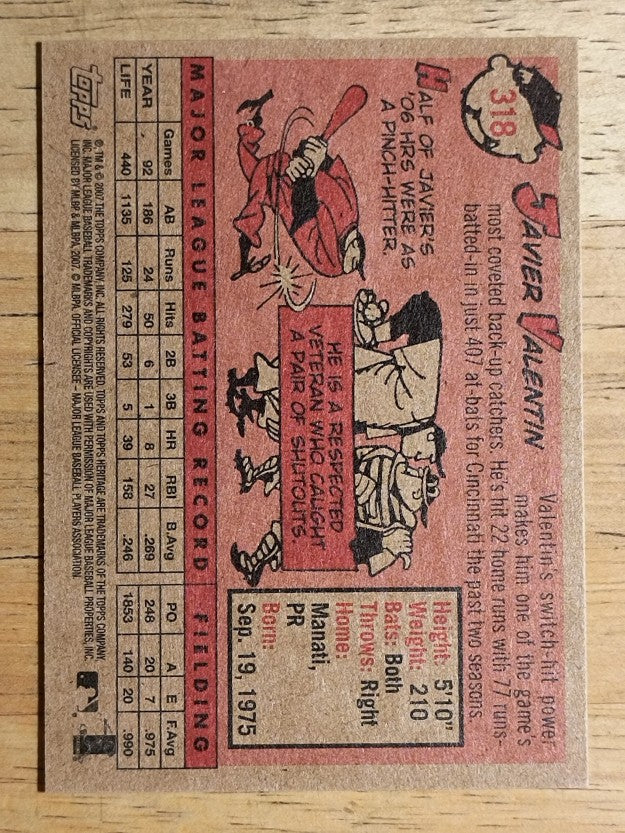 318
JAVIER VALENTIN
Valentin's switch-hit power
makes him one of the game's
most coveted back-up catchers. He's hit 22 home runs with 77 runs-
batted-in in just 407 at-bats for Cincinnati the past two seasons.
HALF OF JAVIER'S
'06 HRS WERE AS
A PINCH-HITTER.
HE IS A RESPECTED
VETERAN WHO CAUGHT
A PAIR OF SHUTOUTS.
Height: 5'10"
Weight: 210
Bats: Both
Throws: Right
Home:
Manati,
PR
Born:
Sep. 19, 1975
MAJOR LEAGUE BATTING RECORD FIELDING
Games AB Runs Hits 2B 3B HR RBI B.Avg PO A E F.Avg
YEAR 92 186 24 50 6 1 8 27 .269 248 20 7 .975
LIFE 440 1135 125 279 53 5 39 158 .246 1853 140 20 .990
topps
®, TM & © 2007 THE TOPPS COMPANY, INC. ALL RIGHTS RESERVED. TOPPS AND TOPPS HERITAGE ARE TRADEMARKS OF THE TOPPS COMPANY,
INC. MAJOR LEAGUE BASEBALL TRADEMARKS AND COPYRIGHTS ARE USED WITH PERMISSION OF MAJOR LEAGUE BASEBALL PROPERTIES, INC.
LICENSED BY MLBP & MLBPA, 2007. © MLBPA, OFFICIAL LICENSEE – MAJOR LEAGUE BASEBALL PLAYERS ASSOCIATION.